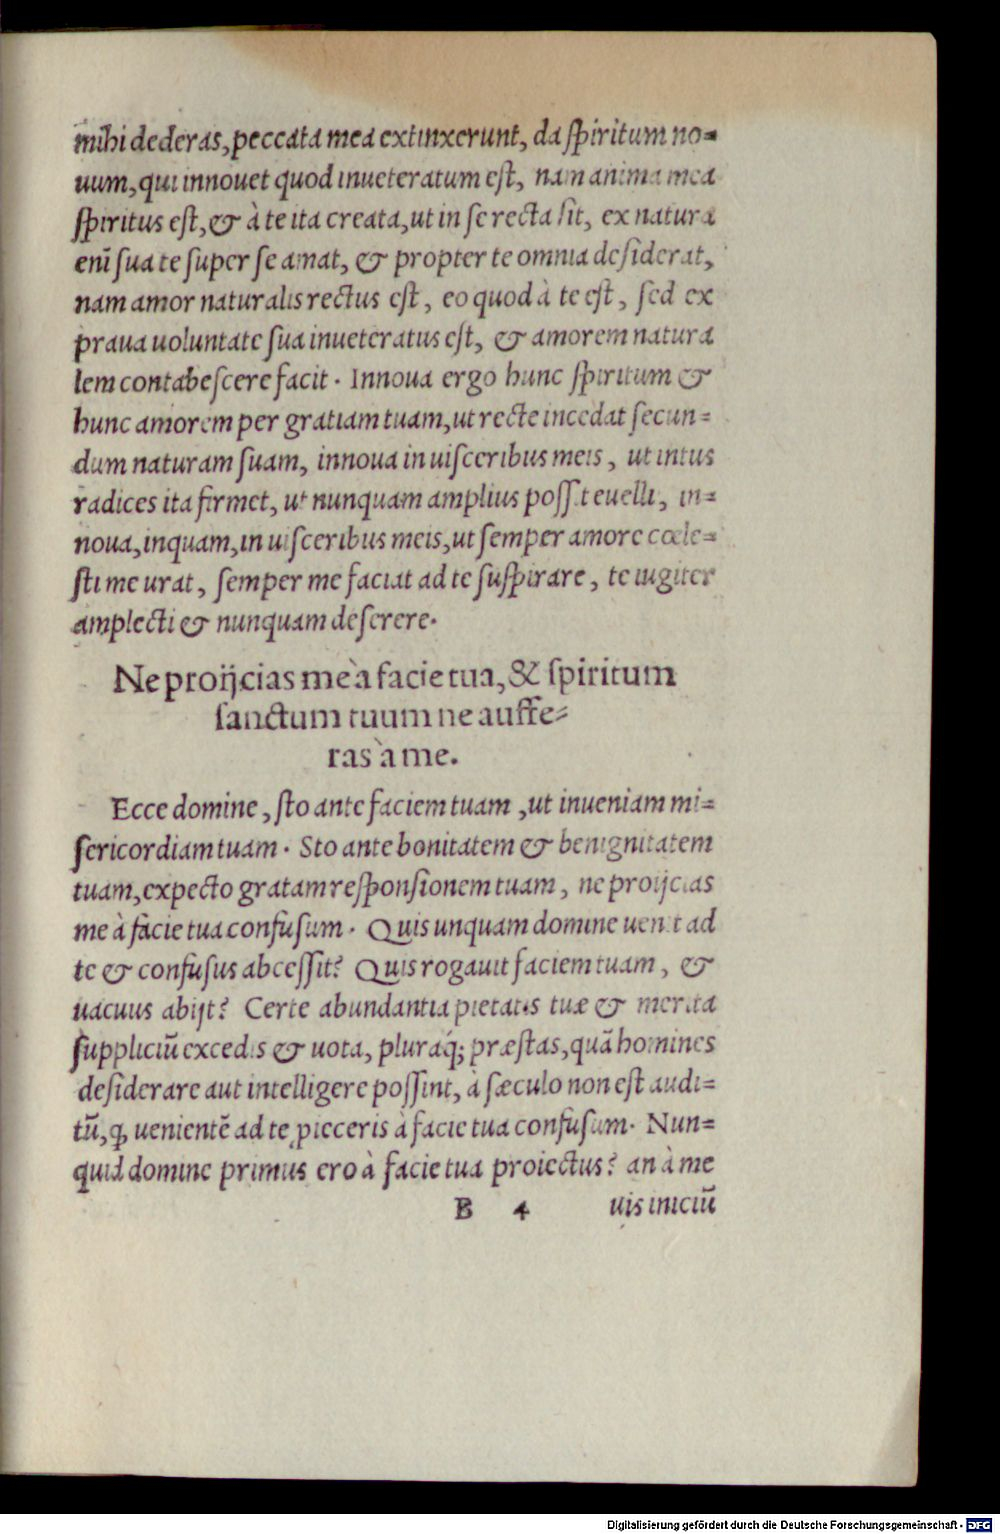 mihi dederas, peccata mea extinxerunt, da spiritum no=
uum, qui innouet quod inueteratum est, nam anima mea
spiritus est, & à te ita creata, ut in se recta sit, ex natura
eni̅ sua te super se amat, & propter te omnia desiderat,
nam amor naturalis rectus est, eo quod à te est, sed ex
praua uoluntate sua inueteratus est, & amorem natura
lem contabescere facit. Innoua ergo hunc spiritum &
hunc amorem per gratiam tuam, ut recte incedat secun=
dum naturam suam, innoua in uisceribus meis, ut intus
radices ita firmet, ut nunquam amplius possit euelli, in=
noua, inquam, in uisceribus meis, ut semper amore cœle=
sti me urat, semper me faciat ad te suspirare, te iugiter
amplecti & nunquam deserere.
Ne proijcias me à facie tua, & spiritum
sanctum tuum ne auffe=
ras à me.
Ecce domine, sto ante faciem tuam, ut inueniam mi=
sericordiam tuam. Sto ante bonitatem & benignitatem
tuam, expecto gratam responsionem tuam, ne proijcias
me à facie tua confusum. Quis unquam domine uenit ad
te & confusus abcessit? Quis rogauit faciem tuam, &
uacuus abijt? Certe abundantia pietatis tuæ & merita
suppliciū excedis & uota, pluraq́; præstas, quā homines
desiderare aut intelligere possint, à sæculo non est audi=
tū, ꝙ uenientē ad te ꝓieceris à facie tua confusum. Nun=
quid domine primus ero à facie tua proiectus? an à me
B 4 uis iniciū
Digitalisierung gefördert durch die Deutsche Forschungsgemeinschaft - DFG